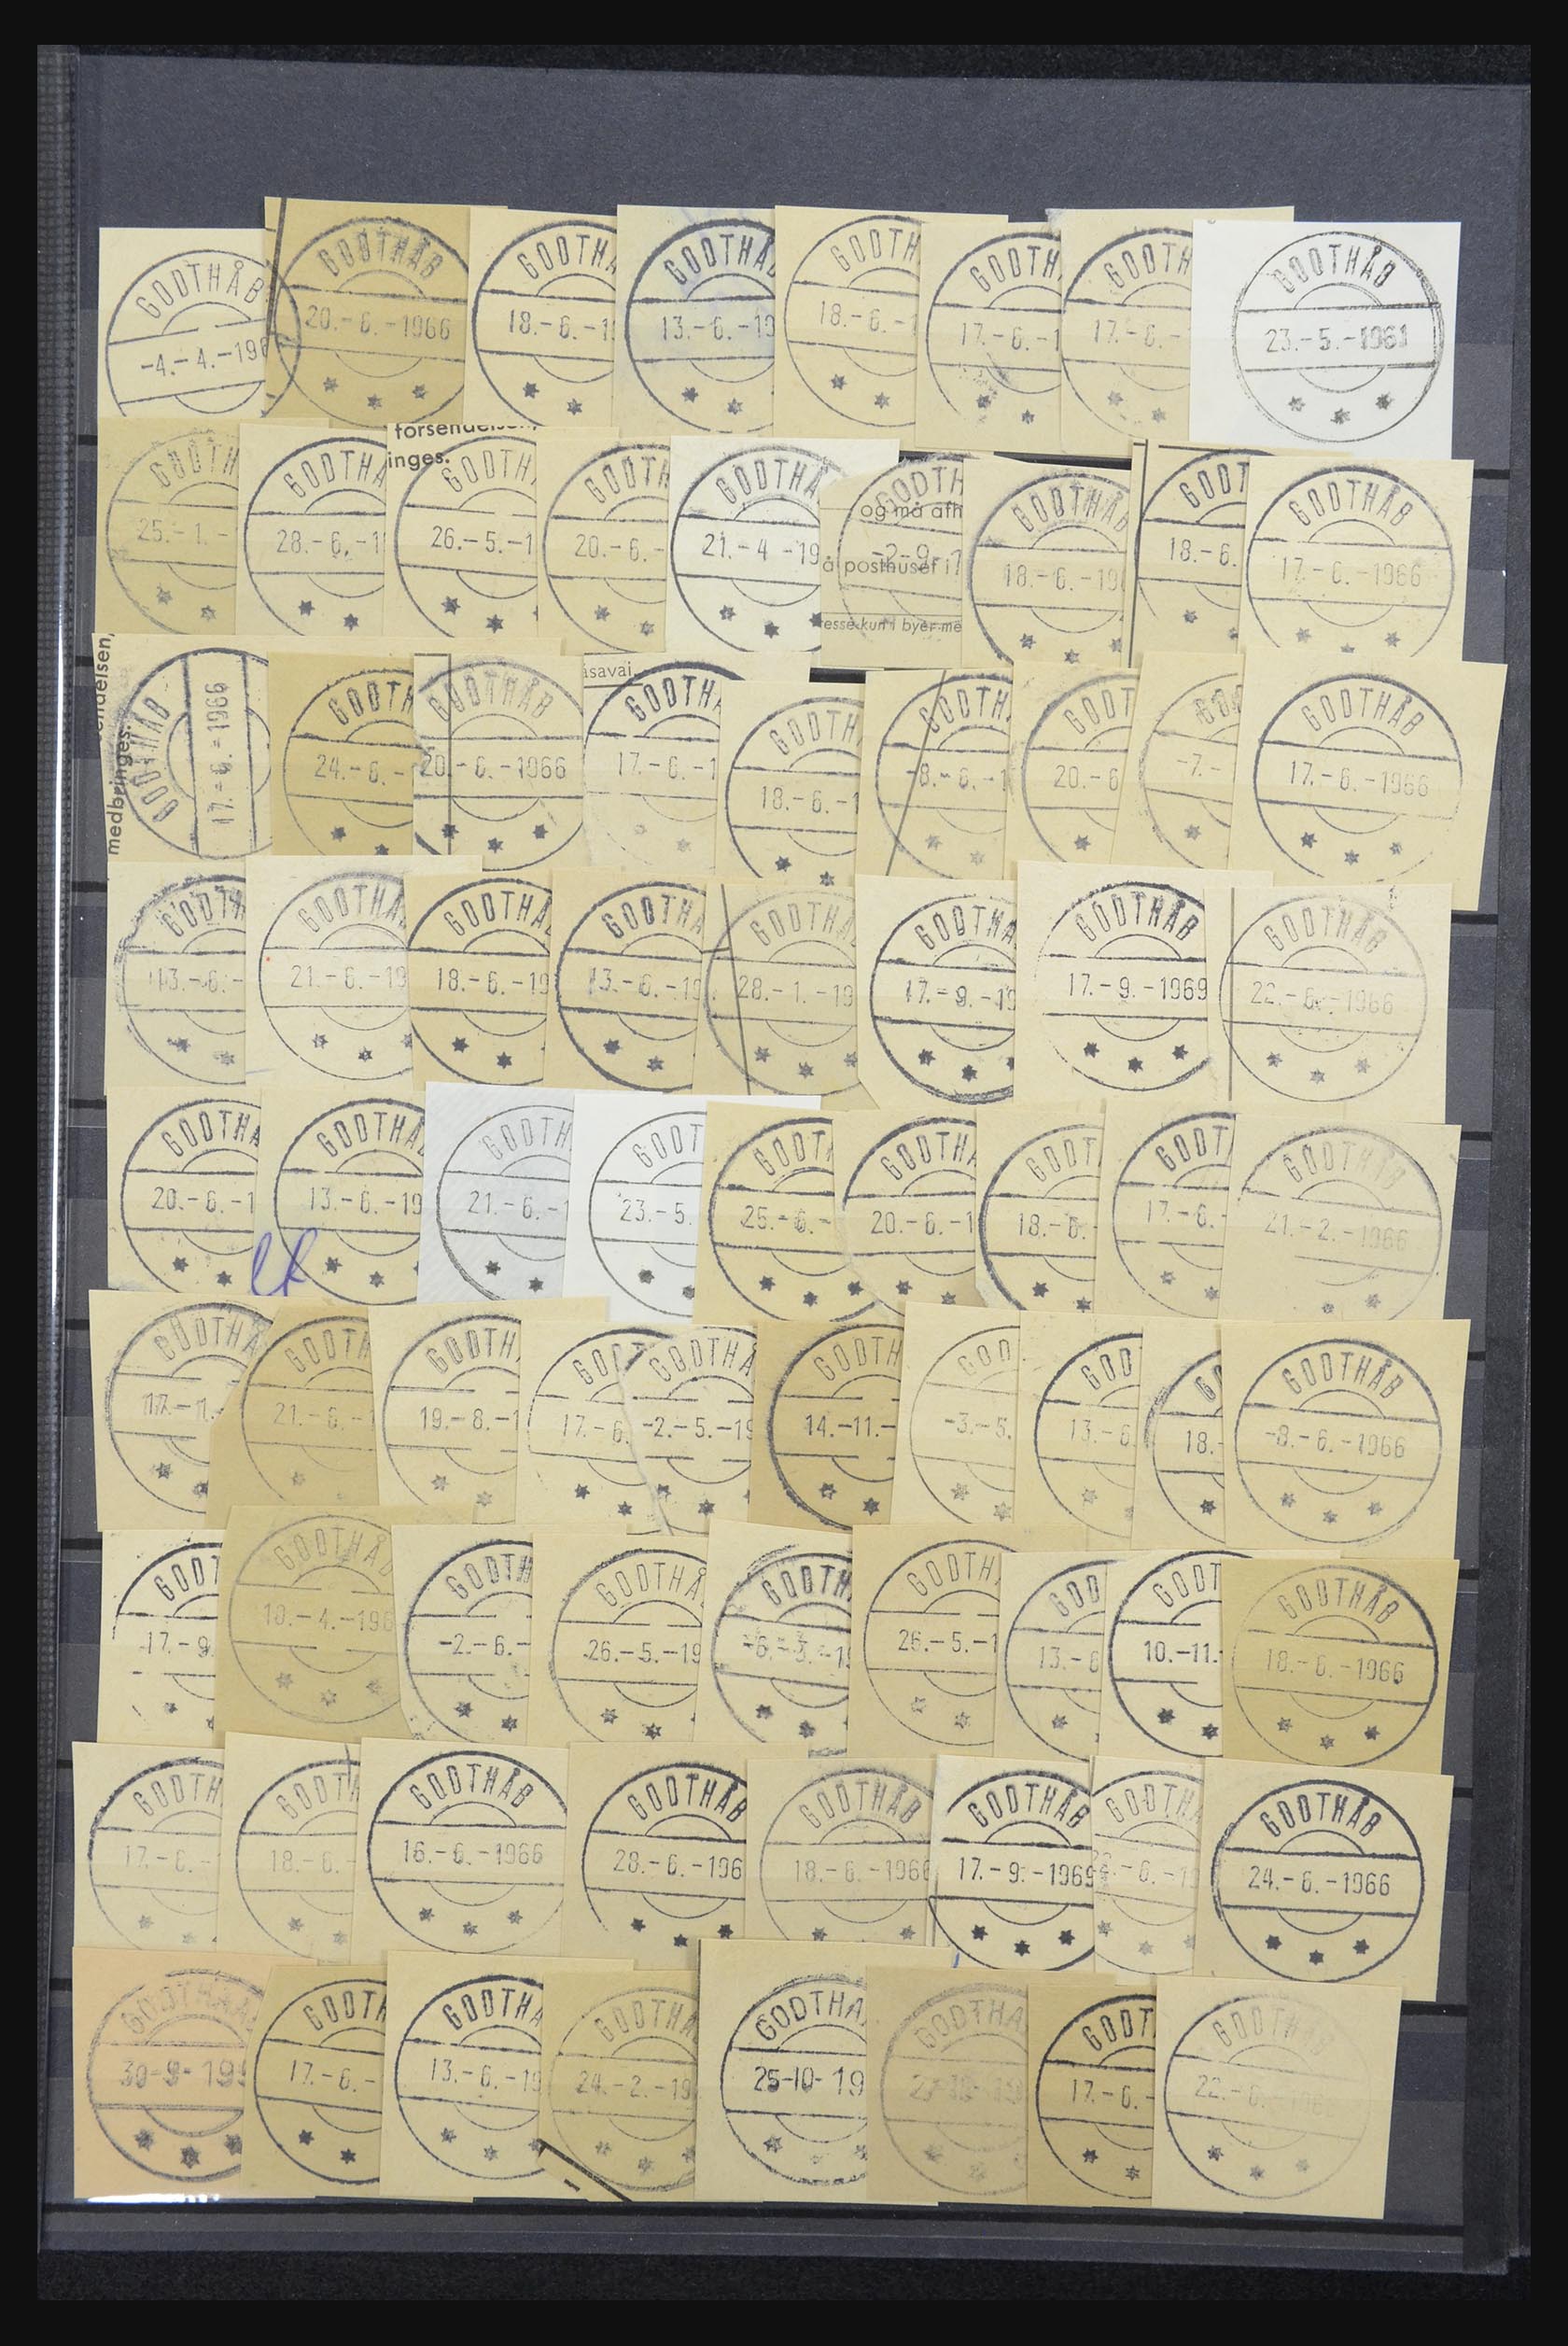 GODTHÅB
-4.-4.-196
GODTHÅB
20.-6.-1966
GODTHÅ
18.-6.-1
GODTHÅ
13.-6.-19
GODTH
18.-6.-1
GODTH
17.-6.-1
GODTH
17.-6.-
GODTHÅB
23.-5.-1961
GODTH
25.-1.-
GODTHÅ
28.-6.-1
forsendelsen,
inges.
GODTH
26.-5.-1
GODTH
20.-6.-
GODTHÅ
21.-4 -19
GODTH
og må afh
-2-9-
å posthuset i
esse kun i byer me
GODTHÅB
18.-6.-19
GODT
18.-6.
GODTHÅB
17.-6.-1966
endelsen,
medbringes.
GODTHÅB
17.-6.-1966
GODTH
24.-6.-
GODTHÅB
20.-6.-1966
asavai
GODTHÅ
17.-6.-1
GODTH
18.-6.-1
GODTH
-8.-6.-1
GODT
20.-6
GO
-7.-
GODTHÅB
17.-6.-1966
GODTH
13.-6.-
GODTHÅ
21.-6.-19
GODTHÅ
18.-6.-19
GODTHÅ
13.-6.-19
GODTHÅ
28.-1.-19
GODTHÅ
17.-9.-19
GODTHÅB
17.-9.-1969
GODTHÅB
22.-6.-1966
GODTHÅ
20.-6.-1
GODTHÅ
13.-6.-19
GODTH
21.-6.-1
GODT
23.-5.
GODT
25.-6.-
GODTHÅ
20.-6.-1
GODT
18.-6.-
GODT
17.-6.-
GODTHÅB
21.-2.-1966
GODTHÅ
GODTH
21.-6.-1
GODTH
19.-8.-1
GOD
17.-6.
GODTHÅ
-2.-5.-19
GODTH
14.-11.-
GOD
-3.-5.
GOD
13.-6
GO
18.-
GODTHÅB
-8.-6.-1966
GODT
17.-9
GODTHÅB
18.-4.-196
GODTH
-2.-6.-
GODTHÅ
26.-5.-19
GODTH
-6.-3.-1
GODTH
26.-5.-1
GOD
13.-6
GODT
10.-11.-
GODTHÅB
18.-6.-1966
GODTH
17.-6.-
GODTH
18.-6.-
GODTHÅB
16.-6.-1966
GODTHÅB
28.-6.-196
GODTHÅB
18.-6.-1966
GODTHÅB
17.-9.-1969
GODTHÅ
-6.-1
GODTHÅB
24.-6.-1966
30-9-199
GODTH
17.-6.-
GODTHÅ
13.-6.-19
GODTHÅ
24.-2.-19
GODTHA
25-10-19
GODTHA
GODT
17.-6.-
GODTHÅB
22.-6.